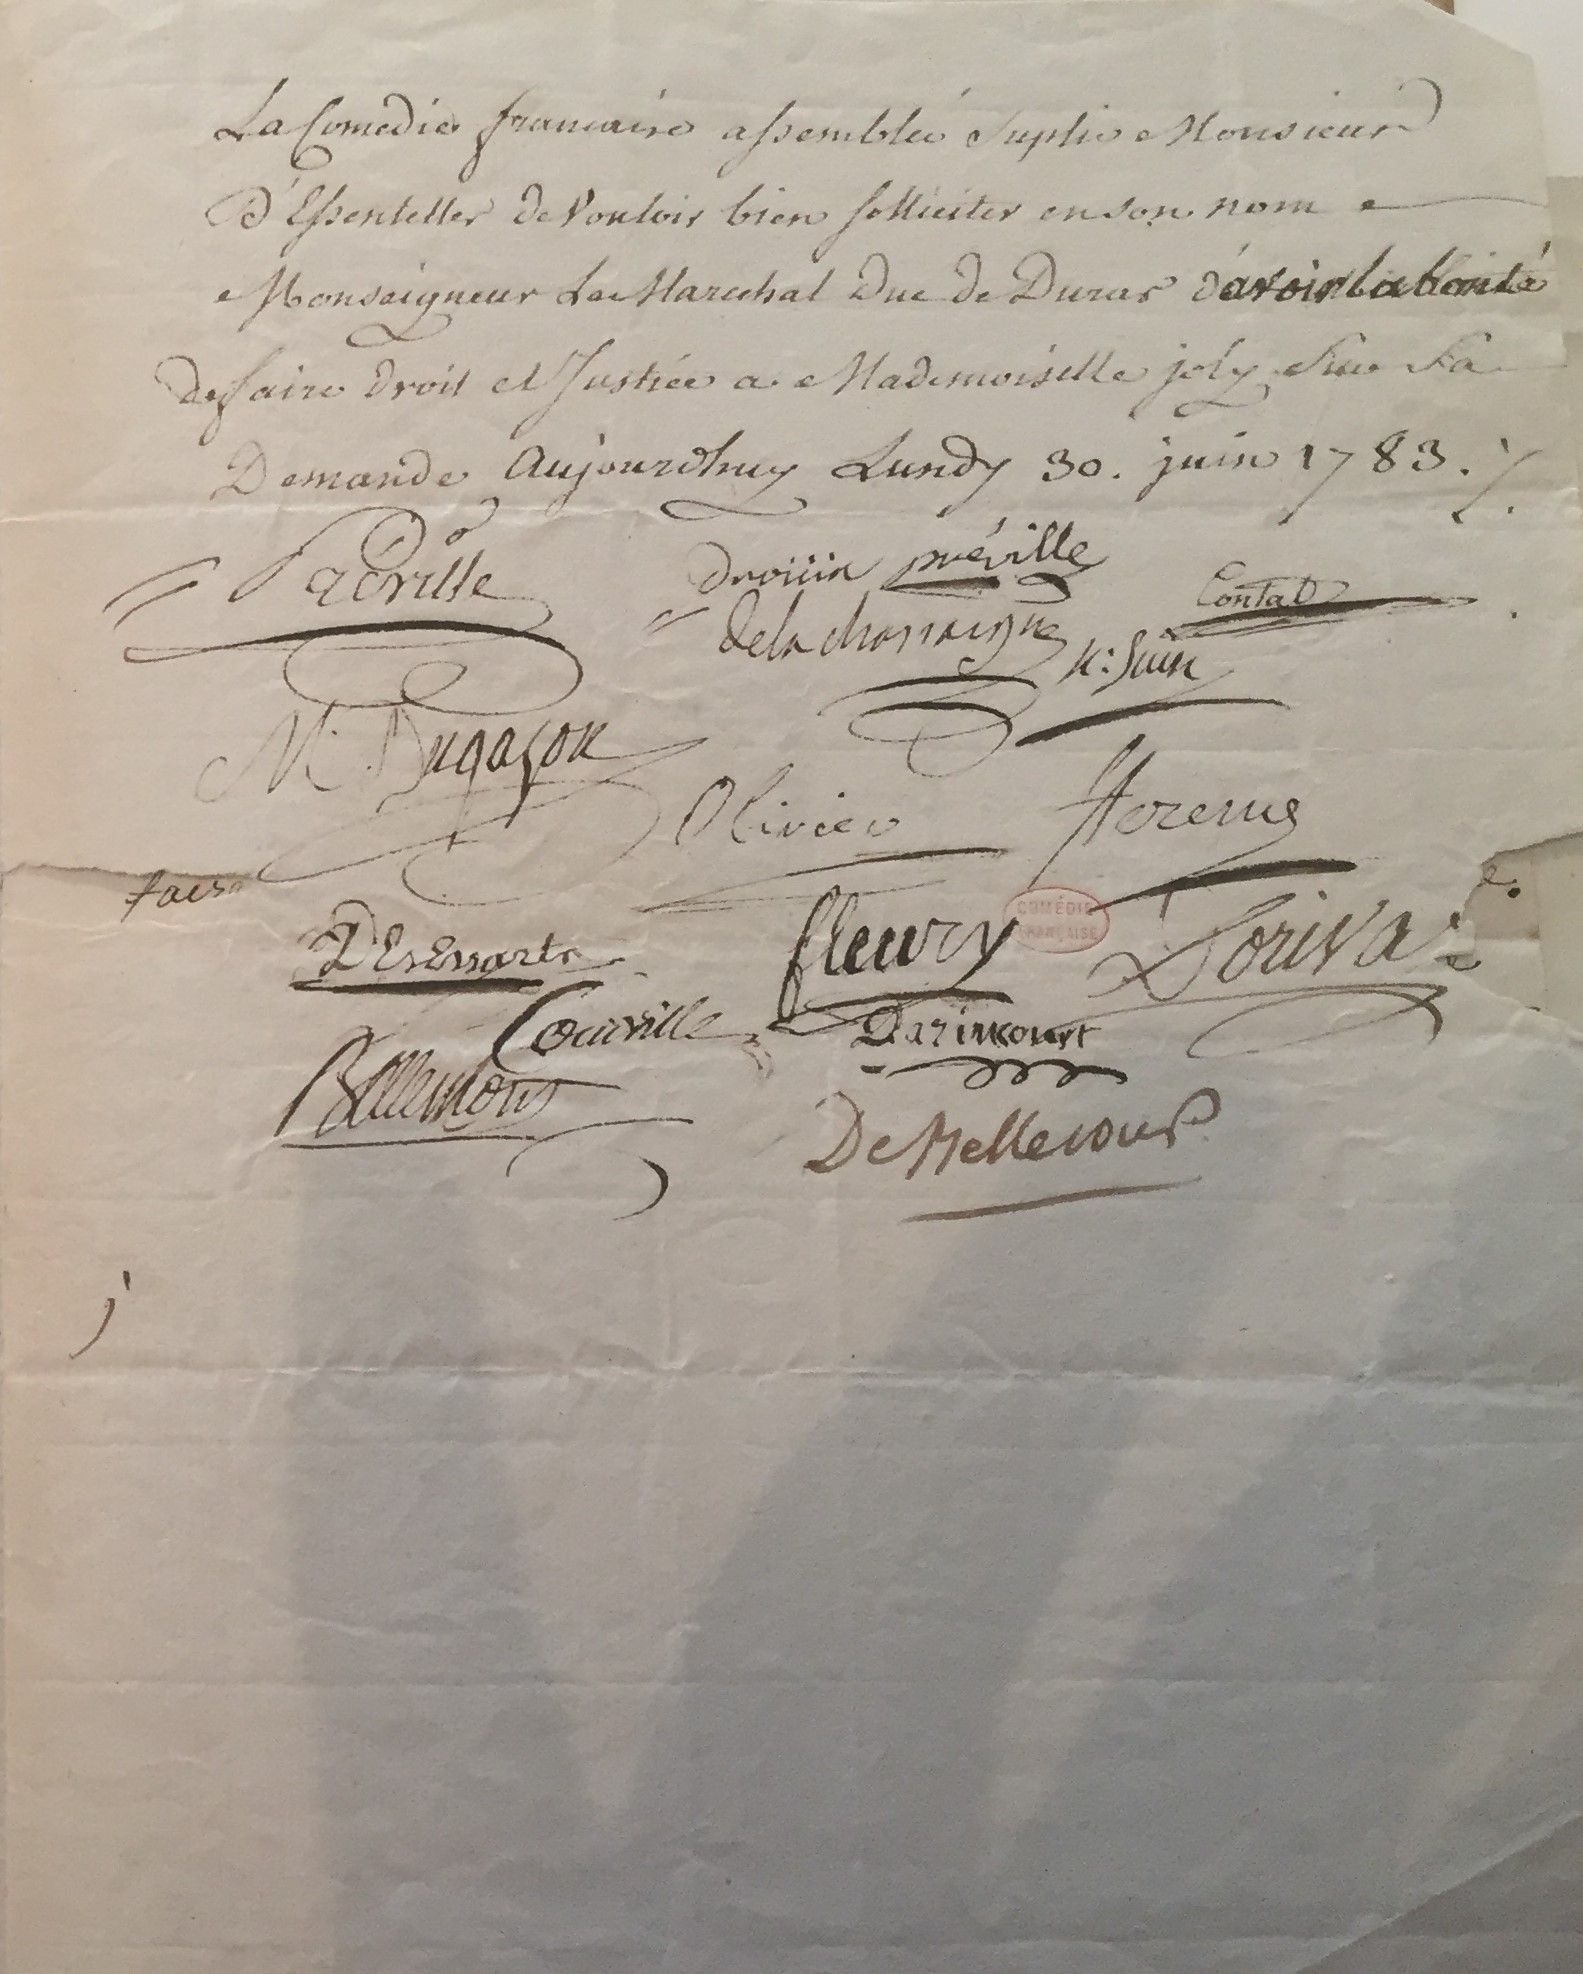 La Comedie francaise assemblée Suplie Monsieur
d'Essenteller de Vouloir bien solliciter en son nom
Monseigneur Le Marechal Duc de Duras d'avoir la bonté
de faire droit et Justice a Mademoiselle joly Sur Sa
Demande Aujourdhuy Lundy 30. juin 1783.
Préville
drouin préville
Contat
de la chassaigne
K: Suin
M. Dugazon
Olivier
florence
DEsEssarts
fleury
COMÉDIE FRANÇAISE
Dorival
Courville
Dazincourt
Bellemont
De Bellecour